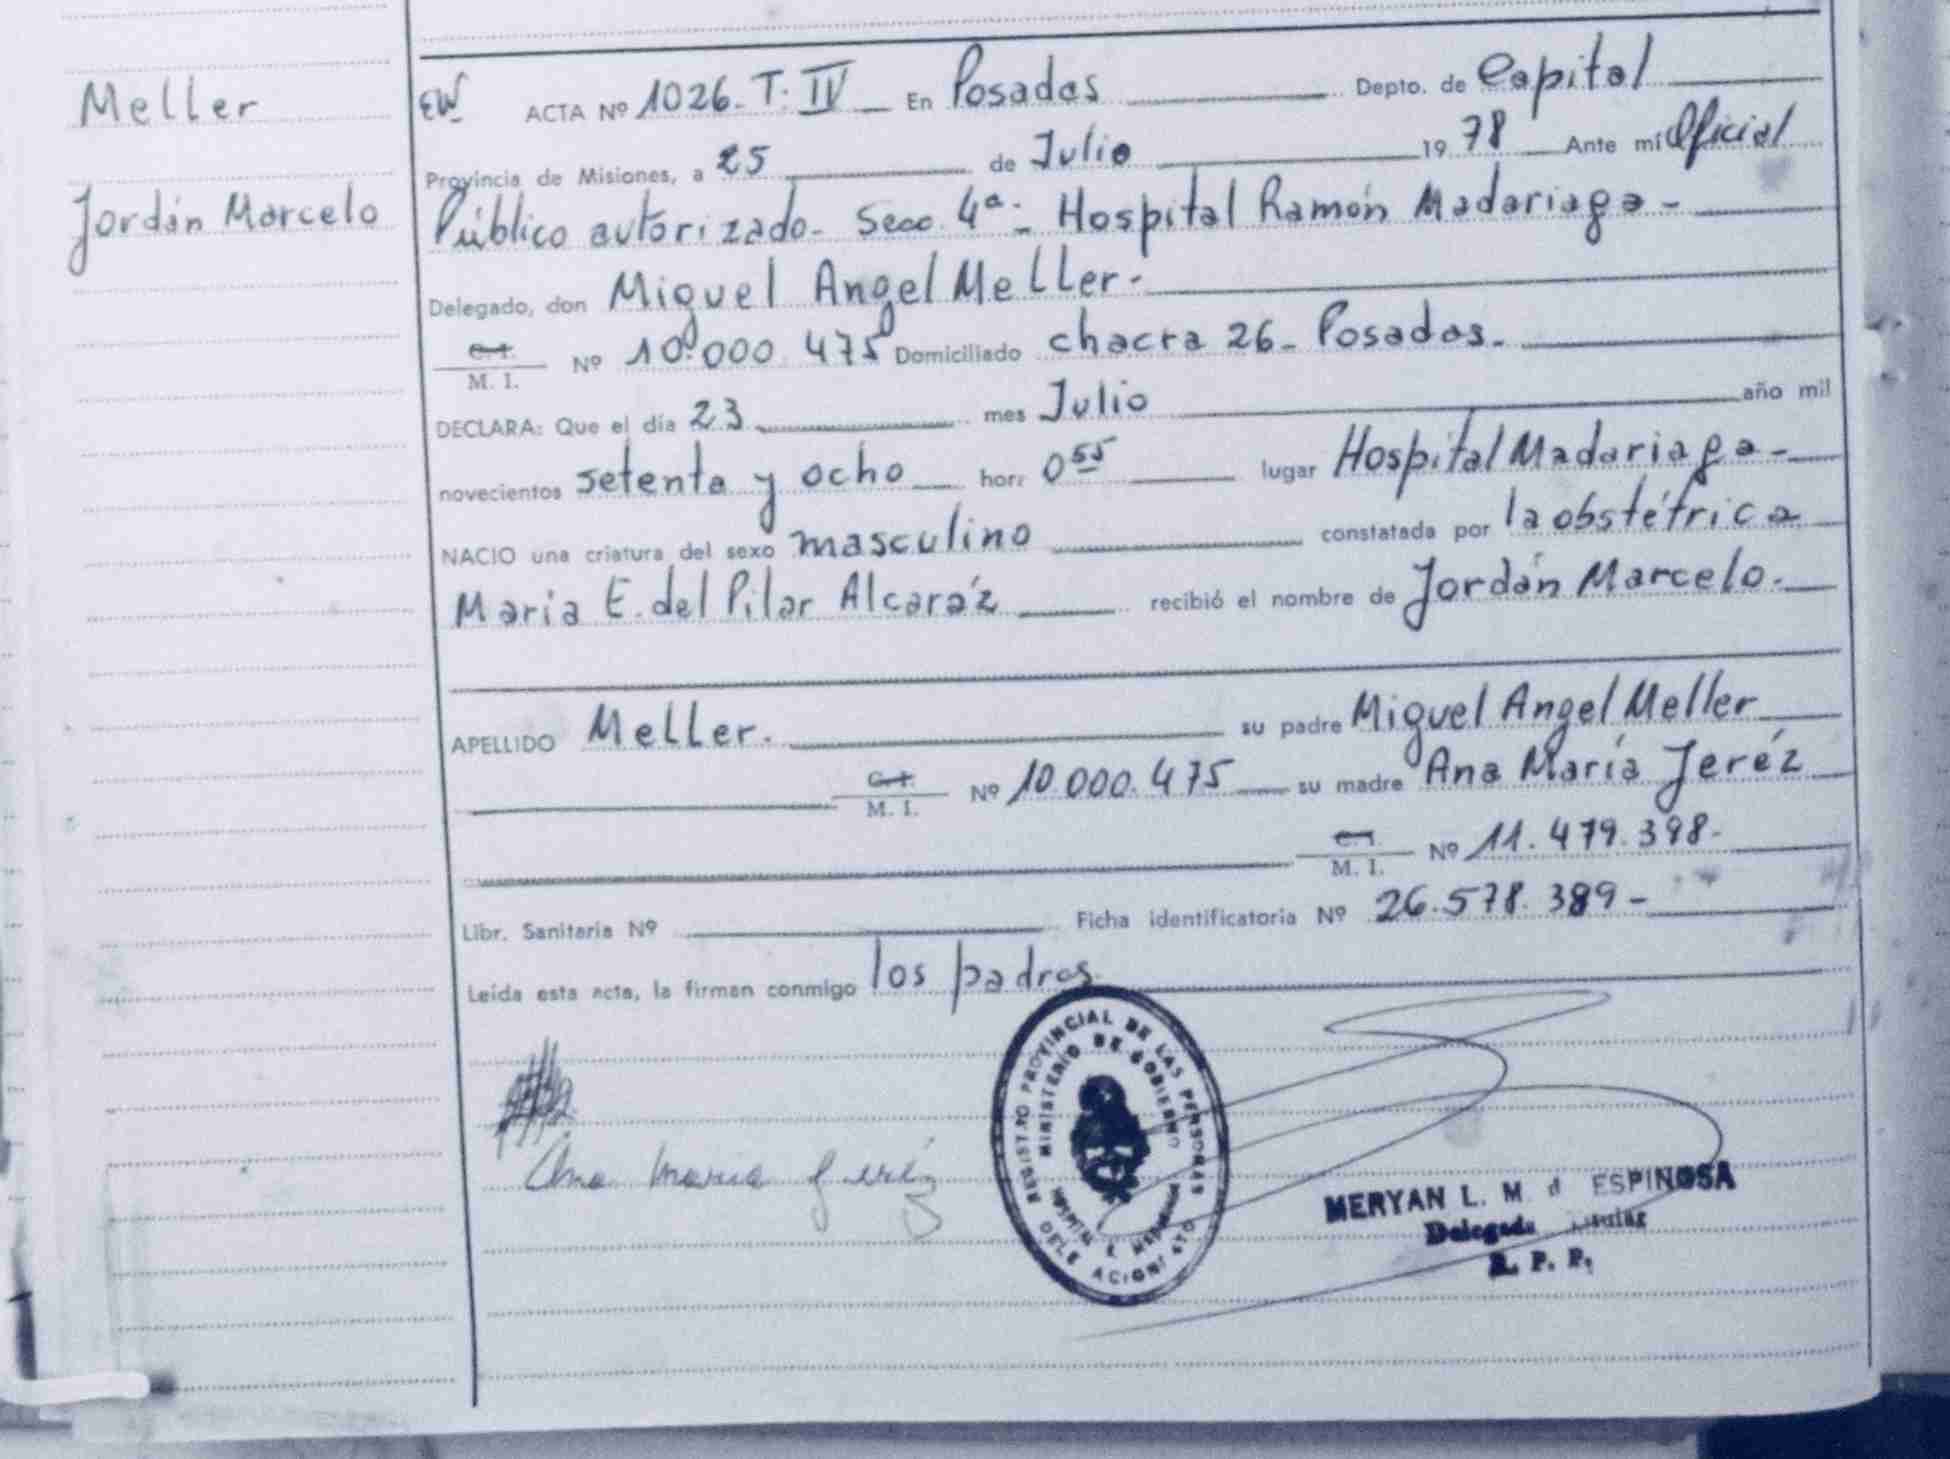 Meller
Jordán Marcelo
EW ACTA Nº 1026. T. IV En Posadas Depto. de Capital
Provincia de Misiones, a 25 de Julio 1978 Ante mí Oficial
Público autorizado. Secc. 4ª. Hospital Ramón Madariaga -
Delegado, don Miguel Angel Meller.
C.I. M. I. Nº 10.000.475 Domiciliado chacra 26 - Posadas.
DECLARA: Que el día 23 mes Julio año mil
novecientos setenta y ocho hora 0 55 lugar Hospital Madariaga -
NACIO una criatura del sexo masculino constatada por la obstétrica
María E. del Pilar Alcaráz recibió el nombre de Jordán Marcelo.
APELLIDO Meller. su padre Miguel Angel Meller
C.I. M. I. Nº 10.000.475 su madre Ana María Jeréz
C.I. M. I. Nº 11.479.398-
Libr. Sanitaria Nº Ficha identificatoria Nº 26.578.389 -
Leída esta acta, la firman conmigo los padres
Ana Maria Jeréz
REGISTRO PROVINCIAL DE LAS PERSONAS
MINISTERIO DE GOBIERNO
HOSPITAL R. MADARIAGA
MERYAN L. M. d ESPINOSA
Delegada Titular
R. P. P.